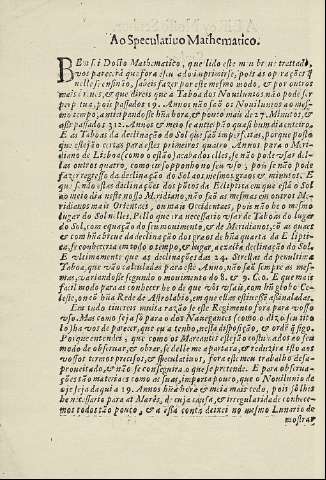 Ao Speculatiuo Mathematico.
BEm sei Docto Mathematico, que lido este meu breue trattado,
vos parecerá que fora escusado imprimirse, pois as operações q̃
nelle se ensinão, sabeis fazer por este mesmo modo, & por outros
mais & que direis que a Taboa dos Nouilunios não pode ser
perpetua, pois passados 19. Annos não são os Nouilunios ao mes-
mo tempo, anticipandose hũa hora, & ponto mais de 27. Minutos, &
assi passados 312. Annos & meio se anticipão quasi hum dia enteiro.
E as Taboas da declinação do Sol que são imperfeitas, porque posto
que estejão certas para estes primeiros quatro Annos para o Meri-
diano de Lisboa, como os estão, acabados elles, se não pode vsar del-
las outros quatro, como se oppoem ao seu vso, pois se não pode
fazer regresso da declinação do Sol aos mesmos graos & minutos. E
que sendo estas declinações dos pontos da Ecliptica em que està o Sol
ao meio dia neste nosso Meridiano, não são as mesmas em outros Me-
ridianos mais Orientaes, ou mais Occidentaes, pois não he o mesmo
lugar do Sol nelles, Pello que era necessario vsar de Taboas do lugar
do Sol, com equação do seu mouimento, & de Meridianos, cõ as quaes
& com hũa breue da declinação dos graos de hũa quarta da Eclipti-
ca, se conheceria em todo o tempo, & lugar, a exacta declinação do Sol.
E vltimamente que as declinações das 24. Strellas da penultima
Taboa, que vão calculadas para este Anno, não são sempre as mes-
mas, variandose segundo o mouimento do 8. & 9. Ceo. E que mais
facil modo para as conhecer he o de que vòs vsais, com hũ globo Ce-
leste, ou cõ hũa Rede de Astrolabio, em que ellas estiuessẽ assinaladas.
Em tudo tiueres muita razão se este Regimento fora para vosso
vso. Mas como seja só para o dos Nauegantes (como o dizo seu titu
lo) haveos de parecer, que eu a tenho, nesta disposição, & ordẽ q̃ sigo.
Porque entendei, que como os Mareantes estejão costumados ao seu
modo de obseruar, & obrar, se delle me apartàra, & reduzira isso aos
vossos termos precisos, & speculatiuos, fora este meu trabalho desa-
proueitado, & não se conseguira o que se pretende. E para obserua-
ções tão materiaes como as suas, importa pouco, que o Nouilunio de
oje seja daqui a 19. Annos hũa hora & meia mais cedo, pois só lhes
he necessario para as Marès, de cuja causa, & irregularidade conhece-
mos todos tão pouco, & a essa conta deixei no mesmo Lunario de
mostrar